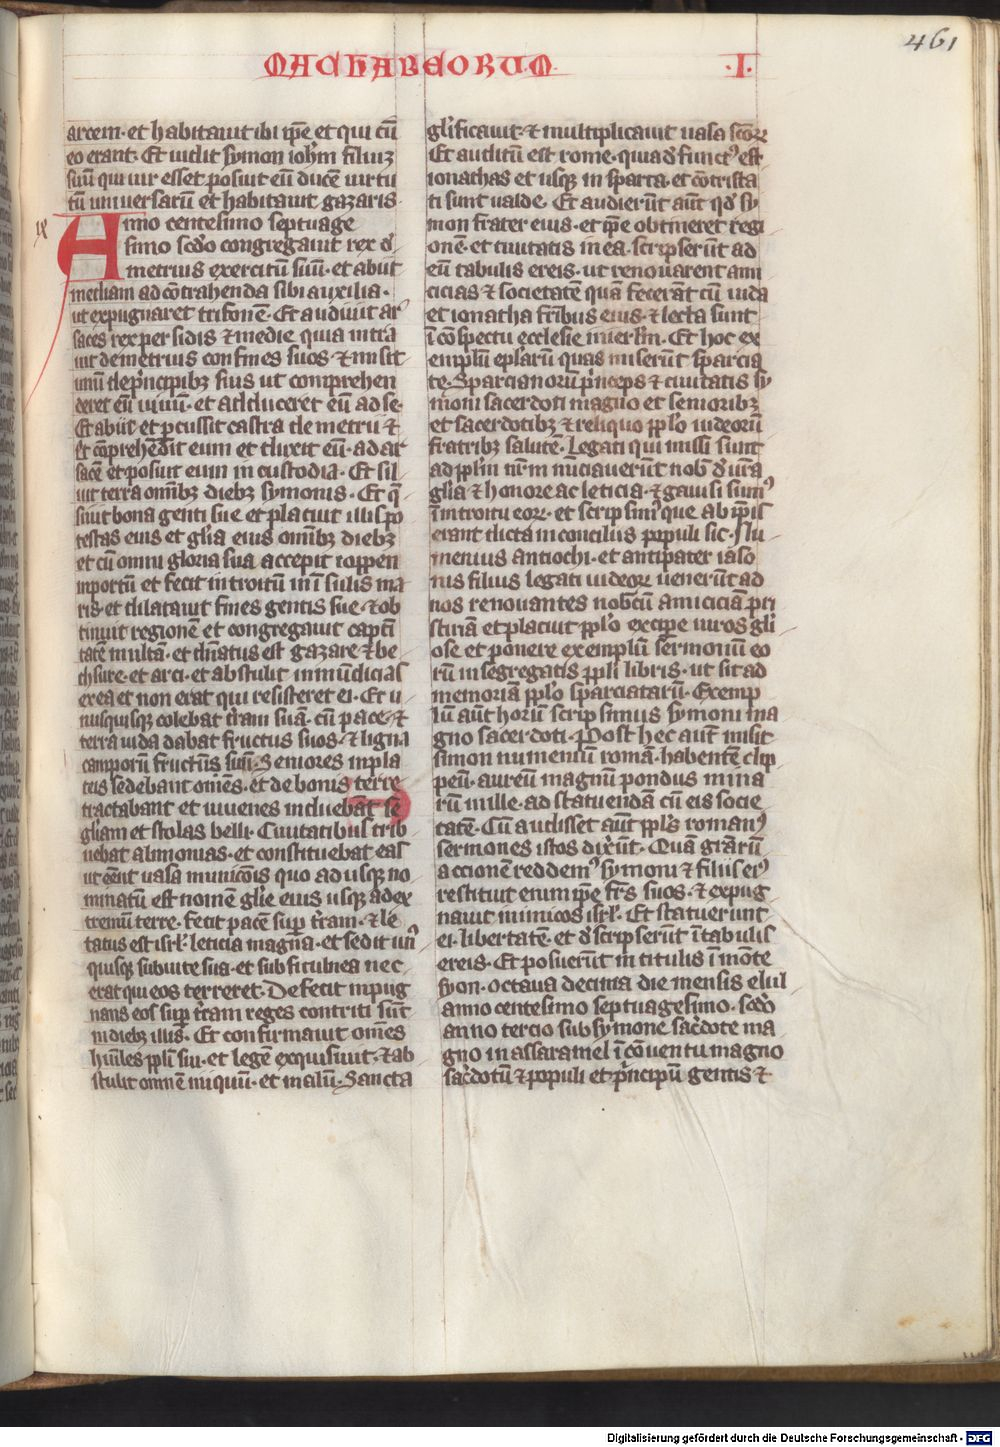 MACHABEORUM ·I·
461
arcem· et habitauit ibi ip̄e et qui cū
eo erant· Et uidit symon ioh̄m filium
suū qui uir esset posuit eū ducē uirtu
tū uniuersarū et habitauit gazaris·
Anno centesimo septuage
simo sc̄do congregauit rex d̄
metrius exercitū suū· et abiit
mediam ad cōtrahenda sibi auxilia·
ut expugnaret trifonē· Et audiuit ar
saces rex persidis ⁊ medie quia intra
uit demetrius confines suos ⁊ misit
unū de p̄ncipibꝫ suis ut comprehen
deret eū uiuū· et adduceret eū ad se·
Et abiit et ꝑcussit castra demetrii ⁊
et cōprehēdit eum et duxit eū· ad ar
sacē et posuit eum in custodia· Et sil
uit terra om̄ibꝫ diebꝫ symonis· Et q̄
siuit bona genti sue et placuit illis po
testas eius et gl̄ia eius om̄ibꝫ diebꝫ
et cū omni gloria sua accepit ioppen
inportū et fecit introitū in īsulis ma
ris· et dilatauit fines gentis sue· ⁊ ob
tinuit regionē et congregauit capti
tatē multā· et dn̄atus est gazare ⁊ be
thsure· et arci· et abstulit inmūdicias
ex ea et non erat qui resisteret ei· Et u
nusquisqꝫ colebat t̄ram suā· cū pace· ⁊
terra iuda dabat fructus suos· ⁊ ligna
camporū fructūs suū· Seniores inpla
teis sedebant om̄es· et de bonis terre
tractabant et iuuenes induebāt se
gl̄iam et stolas belli· Ciuitatibus trib
uebat alimonias· et constituebat eas
ut eēnt uasa municōis quo ad usqꝫ no
minatū est nomē gl̄ie eius usqꝫ ad ex
tremū terre· fecit pacē sup t̄ram· ⁊ le
tatus est isrl̄ leticia magna· et sedit un̄
quisqꝫ sub uite sua· et sub ficulnea nec·
erat qui eos terreret· Defecit inpug
nans eos sup t̄ram reges contriti sūt
in diebꝫ illis· Et confirmauit om̄es
hūiles ppl̄i sui· et legē exquisiuit· ⁊ ab
stulit omnē iniquū· et malū· Sancta
gl̄ificauit· ⁊ multiplicauit uasa scōꝝ
Et auditū est rome· quia d̄funct᾽ est
ionathas et usqꝫ in sparta· et cōtrista
ti sunt ualde· Et audierūt aūt qd̄ sy
mon frater eius· et ip̄e obtineret regi
onē· et ciuitatis in ea· scripserūt ad
eū tabulis ereis· ut renouarent ami
cicias ⁊ societatē quā fecerāt cū iuda
et ionatha fr̄ibus eius· ⁊ lecta sunt
ī cōspectu ecclesie in ierl̄m· Et hoc ex
emplū epl̄arū quas miserūt sparcia
te· Sparcianorū p̄nceps ⁊ ciuitatis sy
moni sacerdoti magno et senioribꝫ
et sacerdotibꝫ ⁊ reliquo ppl̄o iudeorū
fratribꝫ salutē· Legati qui missi sunt
ad ppl̄m nr̄m nūciauerūt nob̄ d̄ ur̄a
gl̄ia ⁊ honore ac leticia· ⁊ gauisi sum᾽
ī introitu eoꝝ· et scripsim᾽ que ab ip̄is
erant dicta in conciliis populi sic· Nu
menius antiochi· et antipater iaso
nis filius legati iudeoꝝ uenerūt ad
nos renouantes nob̄cū amiciciā pri
stinā et placuit ppl̄o excipe uiros gl̄i
ose et ponere exemplū sermonū eo
rū in segregatis ppl̄i libris· ut sit ad
memoriā ppl̄o sparciatarū· Exemp
lū aūt horū scripsimus symoni ma
gno sacerdoti· Post hec aut̄ misit
simon numeniū romā· habentē clip
peū· aureū magnū pondus mina
rū mille· ad statuendā cū eis socie
tatē· Cū audisset aūt ppl̄s roman᾽
sermones istos dixerūt· Quā gr̄arū
accionē reddem᾽ symoni ⁊ filiis ei᾽
restituit enim ip̄e fr̄s suos· ⁊ expug
nauit inimicos isrl̄· Et statuerunt
ei· libertatē· et d̄scripserūt ī tabulis
ereis· Et posuerūt in titulis ī mōte
syon· octaua decima die mensis elul
anno centesimo septuagesimo· sc̄do
anno tercio sub symone sac̄dote ma
gno in assaramel ī conuentu magno
sac̄dotū ⁊ populi et p̄ncipū gentis ⁊
Digitalisierung gefördert durch die Deutsche Forschungsgemeinschaft - DFG